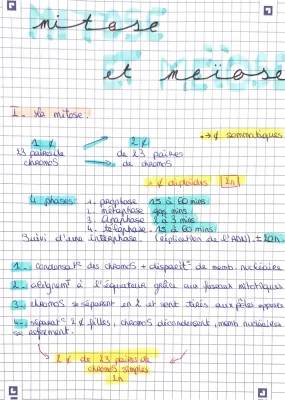 mitose
et meïose
I - La mitose.
1 ¢ → 2 ¢ → ¢ somatiques
23 paires de chromoS de 23 paires de chromoS
¢ diploïdes 2n
4 phases: 1. prophase 15 à 60 mins
2. métaphase mins
3. anaphase 2 à 3 mins
4. télophase 15 à 60 mins
Suivi d'une interphase (réplication de l'ADN) ± 20h
1 - condensat° des chromoS + disparit° de memb. nucléaire
2 - alignemt à l'équateur grâce aux fuseaux mitotiques
3 - chromoS se séparent en 2 et sont tirés aux pôles opposés
4 - séparat° 2 ¢ filles, chromoS décondensent, memb nucléaires
se reforment.
2 ¢ de 23 paires de
chromoS simples
2n